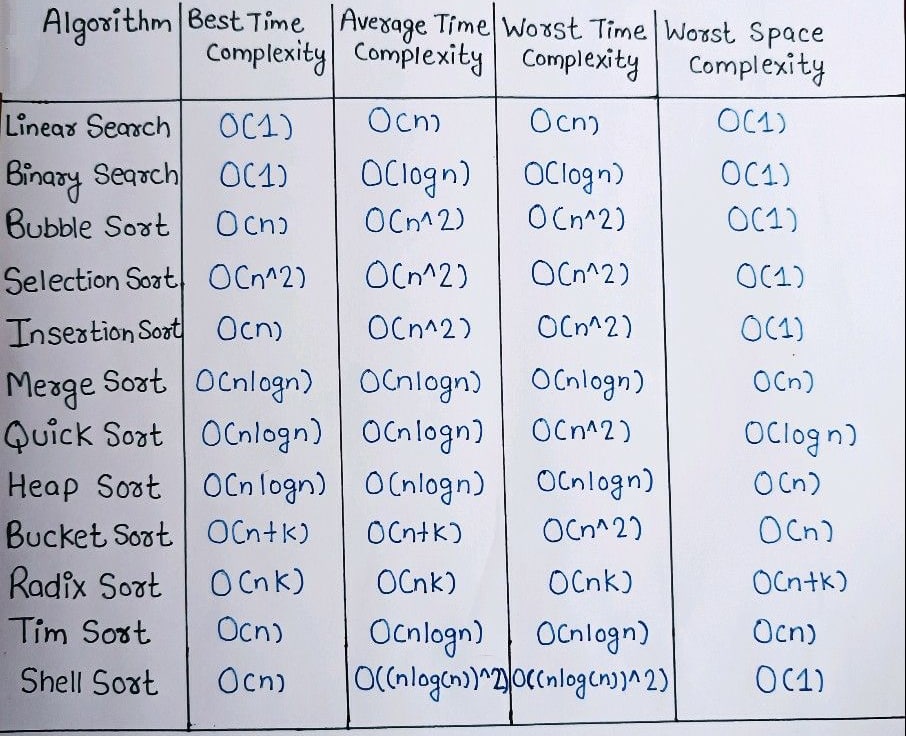 Algorithm Best Time Complexity Average Time Complexity Worst Time Complexity Worst Space Complexity
Linear Search O(1) O(n) O(n) O(1)
Binary Search O(1) O(logn) O(logn) O(1)
Bubble Sort O(n) O(n^2) O(n^2) O(1)
Selection Sort O(n^2) O(n^2) O(n^2) O(1)
Insertion Sort O(n) O(n^2) O(n^2) O(1)
Merge Sort O(nlogn) O(nlogn) O(nlogn) O(n)
Quick Sort O(nlogn) O(nlogn) O(n^2) O(logn)
Heap Sort O(nlogn) O(nlogn) O(nlogn) O(n)
Bucket Sort O(n+k) O(n+k) O(n^2) O(n)
Radix Sort O(nk) O(nk) O(nk) O(n+k)
Tim Sort O(n) O(nlogn) O(nlogn) O(n)
Shell Sort O(n) O((nlog(n))^2) O((nlog(n))^2) O(1)